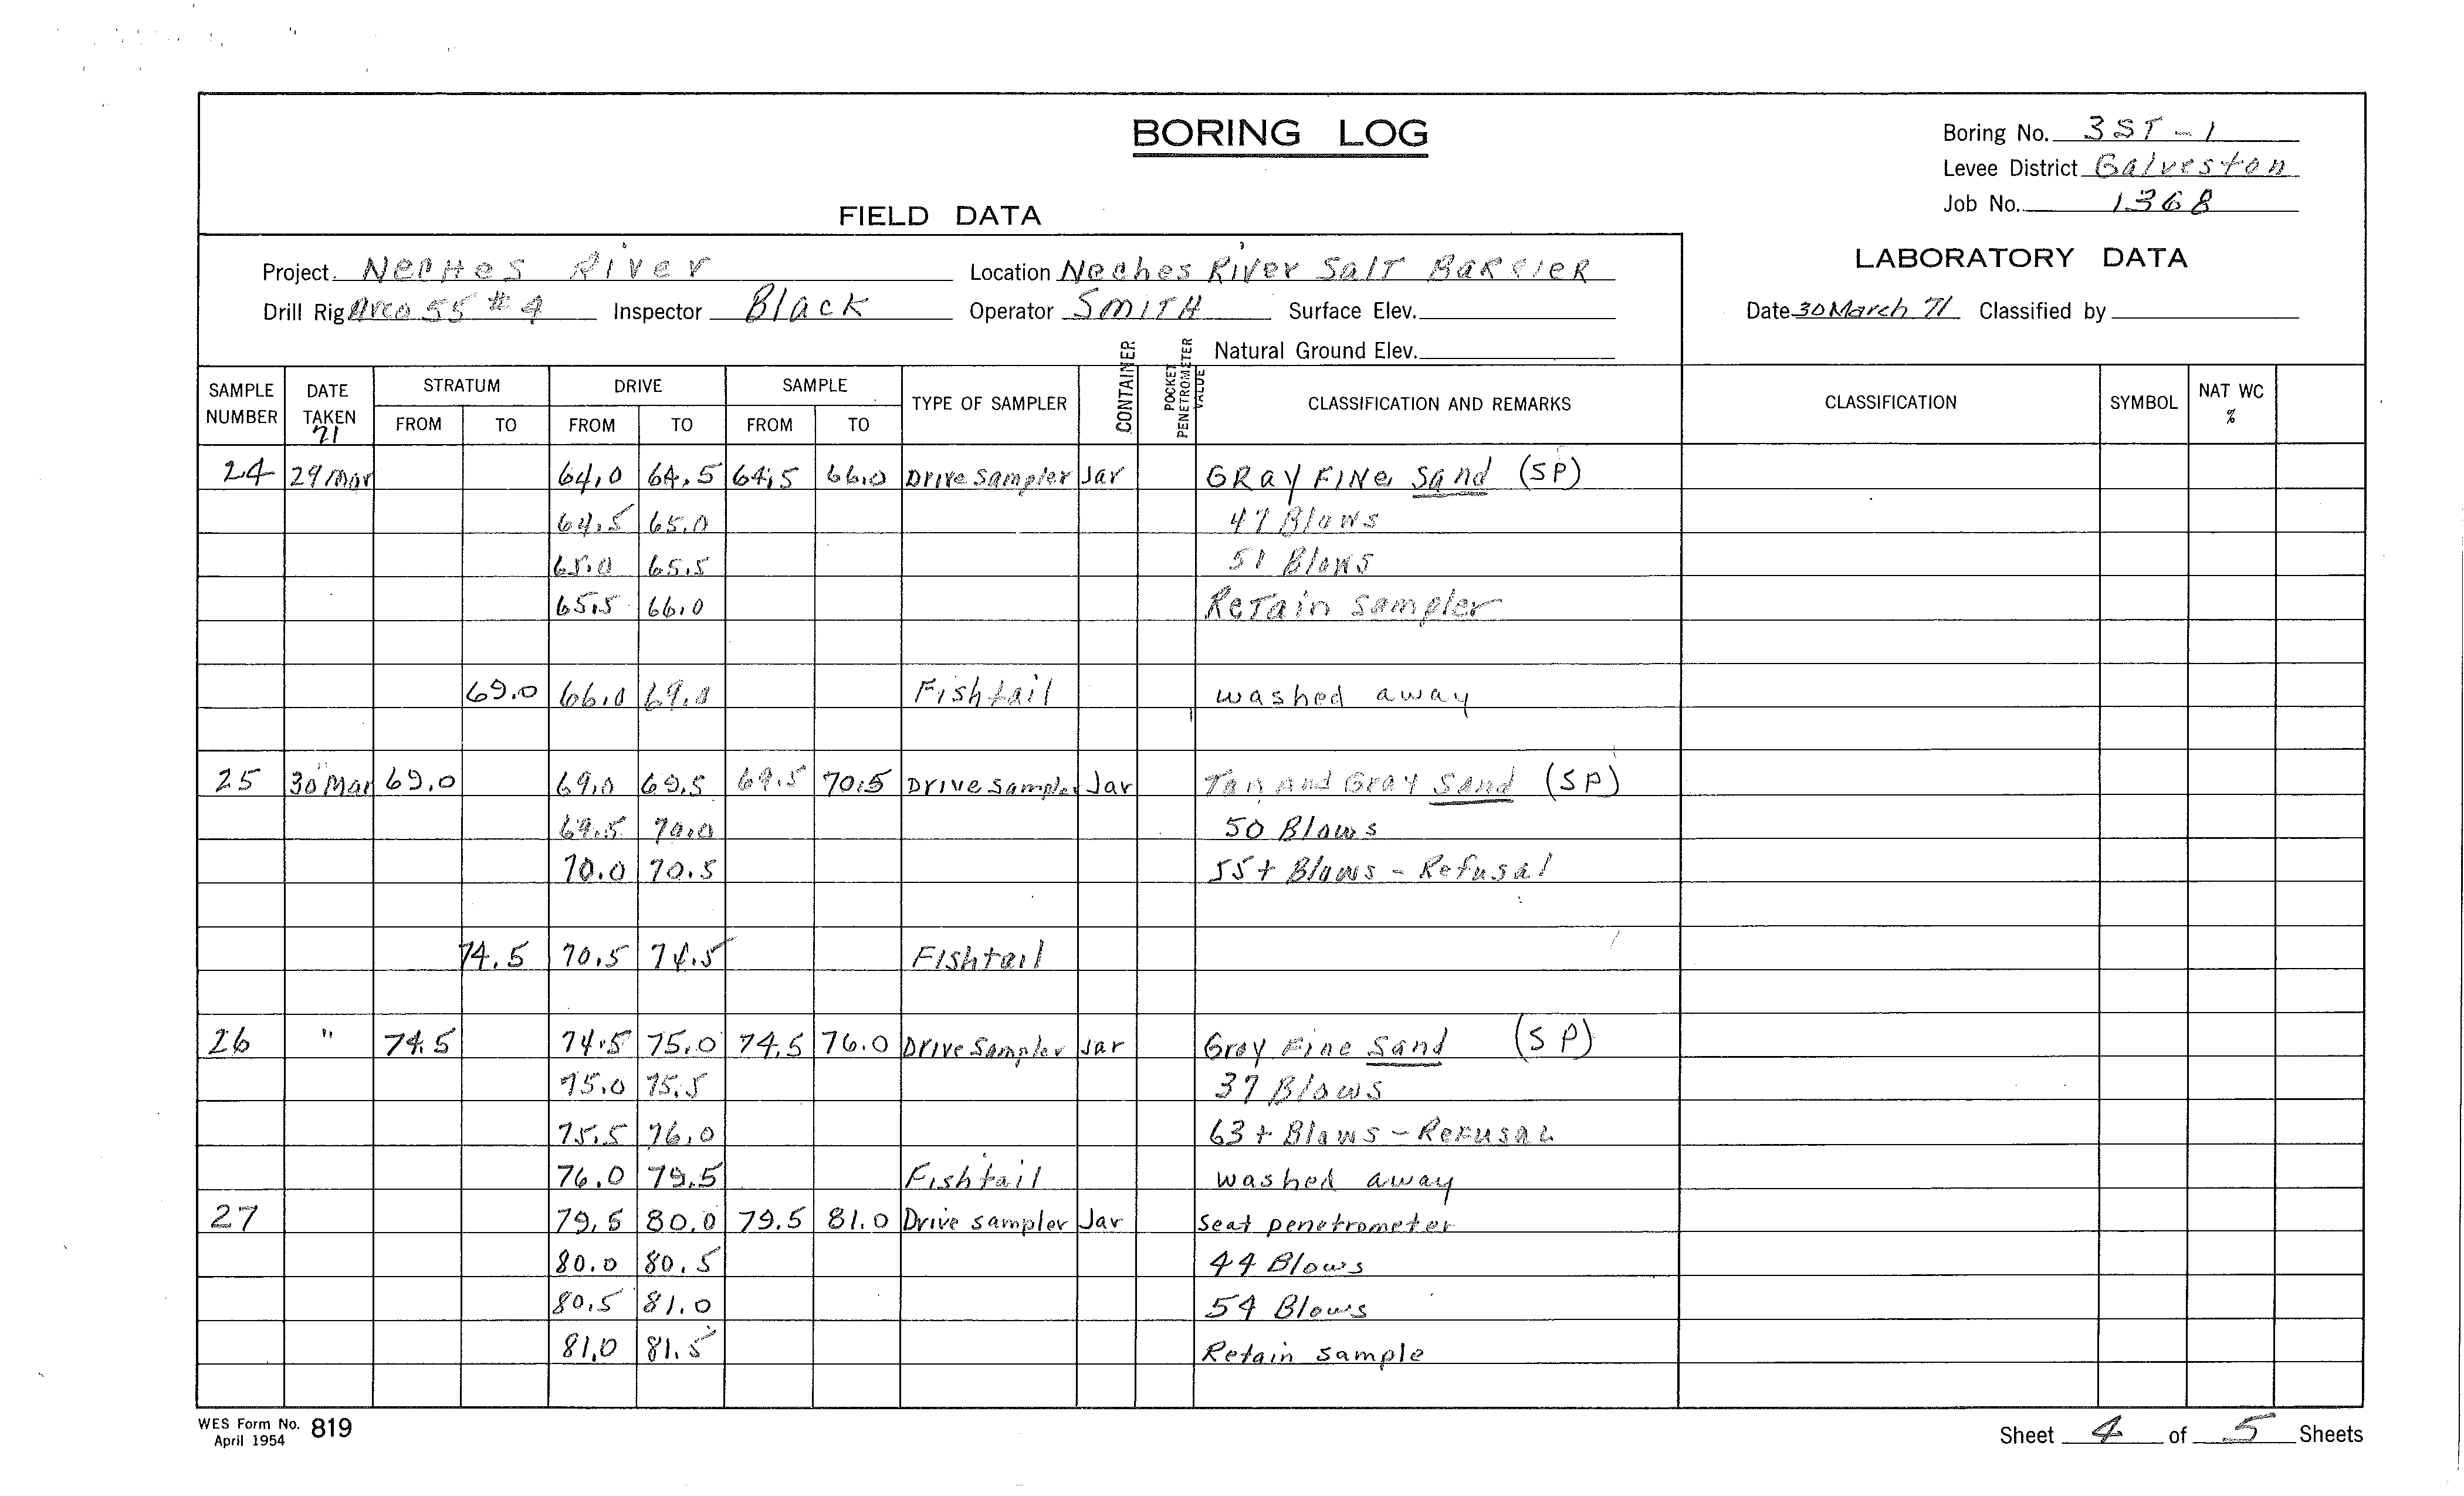 BORING LOG
Boring No. 3ST-1
Levee District Galveston
Job No. 1368
FIELD DATA
LABORATORY DATA
Project. Neches River Location Neches River Salt Barrier
Drill Rig Area 55 # 4 Inspector Black Operator Smith Surface Elev.
Date 30 March 71 Classified by
Natural Ground Elev.
SAMPLE NUMBER DATE TAKEN 71 STRATUM FROM TO DRIVE FROM TO SAMPLE FROM TO TYPE OF SAMPLER CONTAINER POCKET PENETROMETER VALUE CLASSIFICATION AND REMARKS CLASSIFICATION SYMBOL NAT WC %
24 29 Mar 64.0 64.5 64.5 66.0 Drive Sampler Jar Gray Fine Sand (SP)
64.5 65.0 47 Blows
65.0 65.5 51 Blows
65.5 66.0 Retain sampler
69.0 66.0 69.0 Fishtail washed away
25 30 Mar 69.0 69.0 69.5 69.5 70.5 Drive Sampler Jar Tan and Gray Sand (SP)
69.5 70.0 50 Blows
70.0 70.5 55+ Blows - Refusal
74.5 70.5 74.5 Fishtail
26 " 74.5 74.5 75.0 74.5 76.0 Drive Sampler Jar Gray Fine Sand (SP)
75.0 75.5 37 Blows
75.5 76.0 63+ Blows - Refusal
76.0 79.5 Fishtail washed away
27 79.5 80.0 79.5 81.0 Drive sampler Jar Seat penetrometer
80.0 80.5 44 Blows
80.5 81.0 54 Blows
81.0 81.5 Retain sample
WES Form No. 819
April 1954
Sheet 4 of 5 Sheets